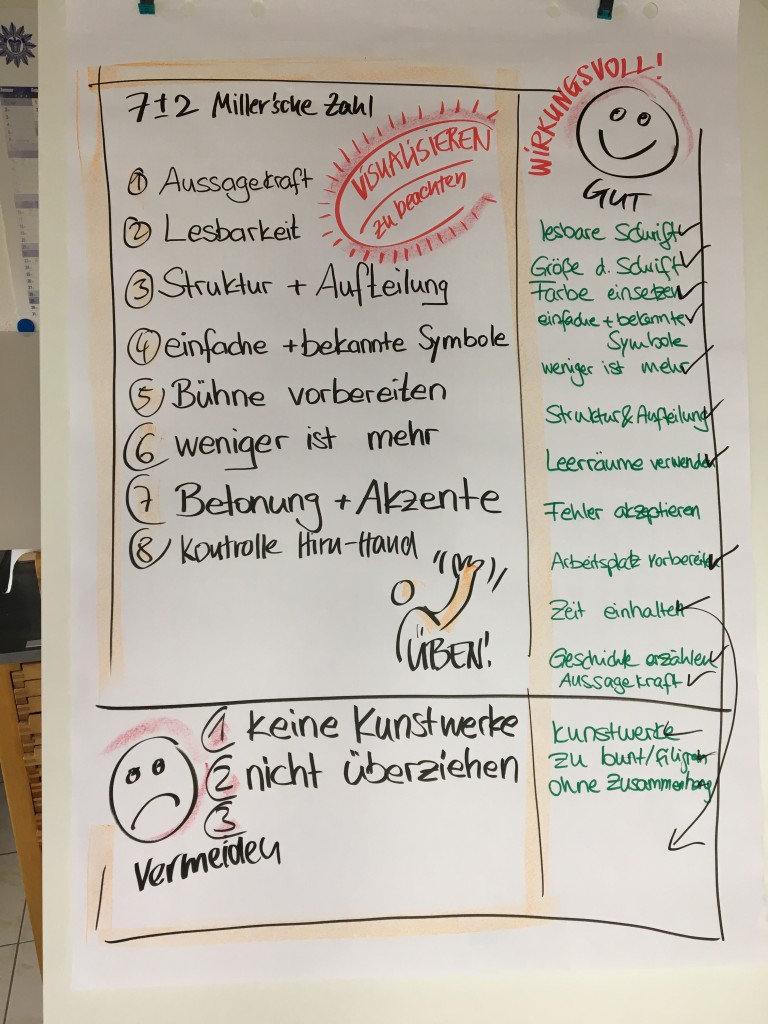 7±2 Miller'sche Zahl
VISUALISIEREN
zu beachten
1 Aussagekraft
2 Lesbarkeit
3 Struktur + Aufteilung
4 einfache + bekannte Symbole
5 Bühne vorbereiten
6 weniger ist mehr
7 Betonung + Akzente
8 Kontrolle Hirn-Hand
ÜBEN!
WIRKUNGSVOLL!
GUT
lesbare Schrift
Größe d. Schrift
Farbe einsetzen
einfache + bekannte
Symbole
weniger ist mehr
Struktur & Aufteilung
Leerräume verwenden
Fehler akzeptieren
Arbeitsplatz vorbereiten
Zeit einhalten
Geschichte erzählen
Aussagekraft
1 keine Kunstwerke
2 nicht überziehen
3
Vermeiden
Kunstwerke
zu bunt/filigran
ohne Zusammenhang